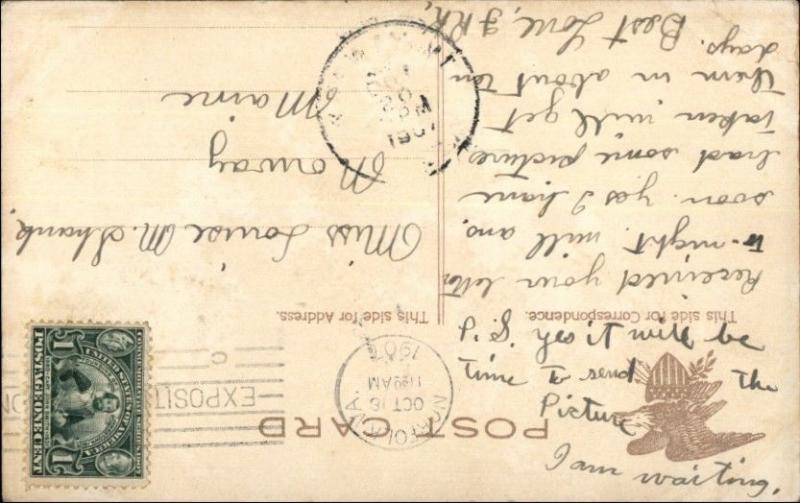 POST CARD
This side for Correspondence.
This side for Address.
NORFOLK, VA.
OCT 18
11 30 AM
1907
EXPOSIT
UNITED STATES OF AMERICA
POSTAGE ONE CENT
1
1
Received your letter
to-night. will ans.
soon. yes I have
had some pictures
taken, will get
them in about ten
days.
Best Love,
Miss Louise M. Shank,
Norway
Maine
1907
P.S. Yes it will be
time to send the
Picture
I am waiting.